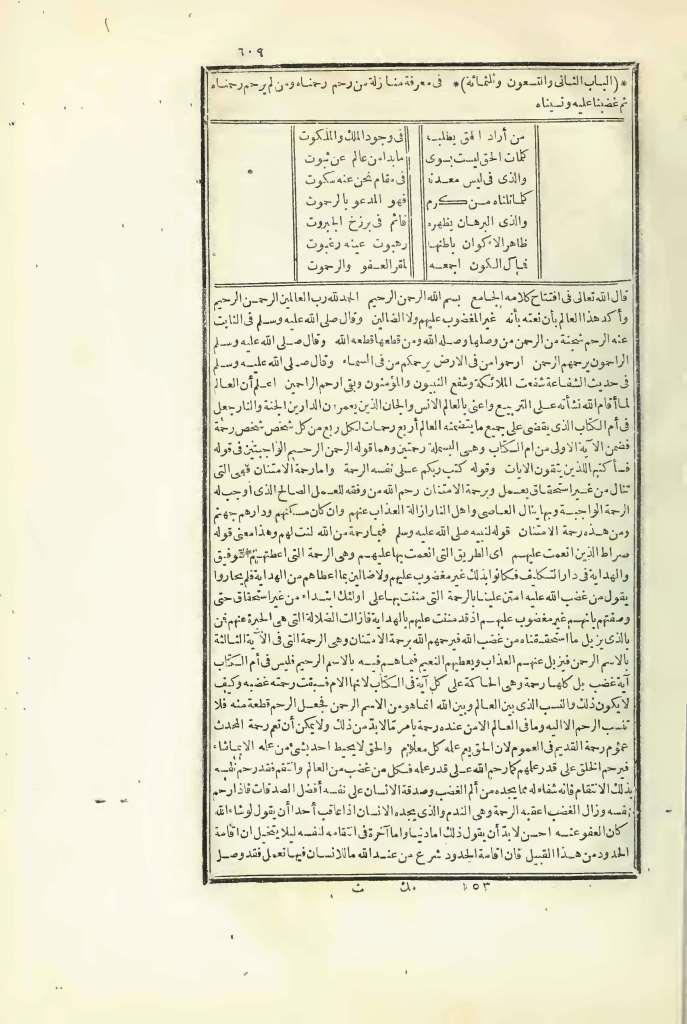 ٦٠٩
*(الباب الثانى والتسعون وثلثمائة)* فى معرفة منازلة من رحم رحمناه ومن لم يرحم رحمناه
ثم غضبنا عليه ونسيناه
من أراد الحق يطلبه فى وجود الملك والملكوت
كلمات الحق ليست سوى ما بدا من عالم عن ثبوت
والذى فى ليس معدنه فى مقام نحن عنه سكوت
كلما نلناه من كرم فهو المدعو بالرحموت
والذى البرهان يظهره قائم فى برزخ الجبروت
ظاهر الاكوان باطنها رهبوت عينه رغبوت
فما كل الكون اجمعه لمقر العفو والرحموت
قال الله تعالى فى افتتاح كلامه الجامع بسم الله الرحمن الرحيم الحمد لله رب العالمين الرحمن الرحيم
وأكد هذا العالم بأن نعته بأنه غير المغضوب عليهم ولا الضالين وقال صلى الله عليه وسلم فى الثابت
عنه الرحم شجنة من الرحمن من وصلها وصله الله ومن قطعها قطعه الله وقال صلى الله عليه وسلم
الراحمون يرحمهم الرحمن ارحموا من فى الارض يرحمكم من فى السماء وقال صلى الله عليه وسلم
فى حديث الشفاعة شفعت الملائكة وشفع النبيون والمؤمنون وبقى ارحم الراحمين اعلم أن العالم
لما أقام الله نشأته على التربيع واعنى بالعالم الانس والجان الذين يعمرون الدارين الجنة والنار جعل
فى أم الكتاب الذى يقضى على جميع ما يتضمنه العالم أربع رحمات لكل ربع من كل شخص شخص رحمة
فضمن الآية الاولى من ام الكتاب وهى البسملة رحمتين وهما قوله الرحمن الرحيم الواجبتين فى قوله
فسأكتبها للذين يتقون الايات وقوله كتب ربكم على نفسه الرحمة واما رحمة الامتنان فهى التى
تنال من غير استحقاق بعمل وبرحمة الامتنان رحم الله من وفقه للعمل الصالح الذى اوجب له
الرحمة الواجبة وبها ينال العاصى واهل النار ازالة العذاب عنهم وان كان مسكنهم ودارهم جهنم
ومن هذه رحمة الامتنان قوله لنبيه صلى الله عليه وسلم فبما رحمة من الله لنت لهم وهذا معنى قوله
صراط الذين انعمت عليهم اى الطريق التى انعمت بها عليهم وهى الرحمة التى اعطتهم التوفيق
والهداية فى دار التكليف فكانوا بذلك غير مغضوب عليهم ولا ضالين بما اعطاهم من الهداية فلم يحاروا
يقول من غضب الله عليه امتن علينا بالرحمة التى مننت بها على اولئك ابتداء من غير استحقاق حتى
وصفتهم بانهم غير مغضوب عليهم اذ قد مننت عليهم بالهداية فازالت الضلالة التى هى الحيرة عنهم فن
بالذى يزيل ما استحققناه من غضب الله فيرحمهم الله برحمة الامتنان وهى الرحمة التى فى الآية الثالثة
بالاسم الرحمن فيزيل عنهم العذاب ويعطيهم النعيم فيما هم فيه بالاسم الرحيم فليس فى أم الكتاب
آية غضب بل كلها رحمة وهى الحاكمة على كل آية فى الكتاب لانها الام فسبقت رحمته غضبه وكيف
لا يكون ذلك والنسب الذى بين العالم وبين الله انما هو من الاسم الرحمن فجعل الرحم قطعة منه فلا
تنسب الرحم الا اليه وما فى العالم الا من عنده رحمة بامر ما لابد من ذلك ولا يمكن أن تعم رحمة المحدث
عموم رحمة القديم فى العموم لان الحق يعم علمه كل معلوم والحق لا يحيط احد بشئ من علمه الا بما شاء
فيرحم الخلق على قدر علمهم كما رحم الله على قدر علمه فكل من غضب من العالم وانتقم فقد رحم نفسه
بذلك الانتقام فانه شفاء له مما يجده من ألم الغضب وصدقة الانسان على نفسه أفضل الصدقات فاذا رحم
نفسه وزال الغضب اعقبه الرحمة وهى الندم والذى يجده الانسان اذا عاقب أحدا أن يقول لو شاء الله
كان العفو عنه احسن لابد أن يقول ذلك اما دنيا واما آخرة فى انتقامه لنفسه ليلا يتخيل ان اقامة
الحدود من هذا القبيل فان اقامة الحدود شرع من عند الله ما للانسان فيها تعمل فقد وصل
١٥٣ مك ث